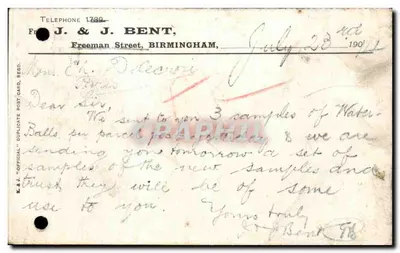 TELEPHONE 1789.
From J. & J. BENT,
Freeman Street, BIRMINGHAM,
July 23rd 1901
Dear Sir,
We sent to you 3 samples of Water-
Balls per parcel post & we are
sending you tomorrow a set of
samples of the new samples and
trust they will be of some
use to you. Yours truly
J & J Bent
K. & J. "OFFICIAL" DUPLICATE POST CARD,